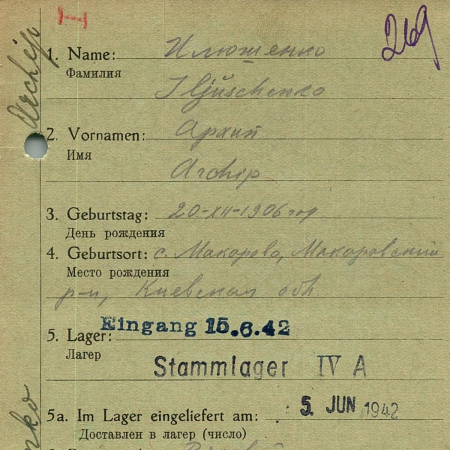 269
Archip
1. Name: Илюшенко
Фамилия
Iljuschenko
2. Vornamen: Архип
Имя
Archip
3. Geburtstag: 20-XII-1906 гор
День рождения
4. Geburtsort: с. Макарово, Макаровский
Место рождения
р-н, Киевская обл
5. Lager: Eingang 15.6.42
Лагер
Stammlager IV A
5a. Im Lager eingeliefert am: 5. JUN 1942
Доставлен в лагер (число)